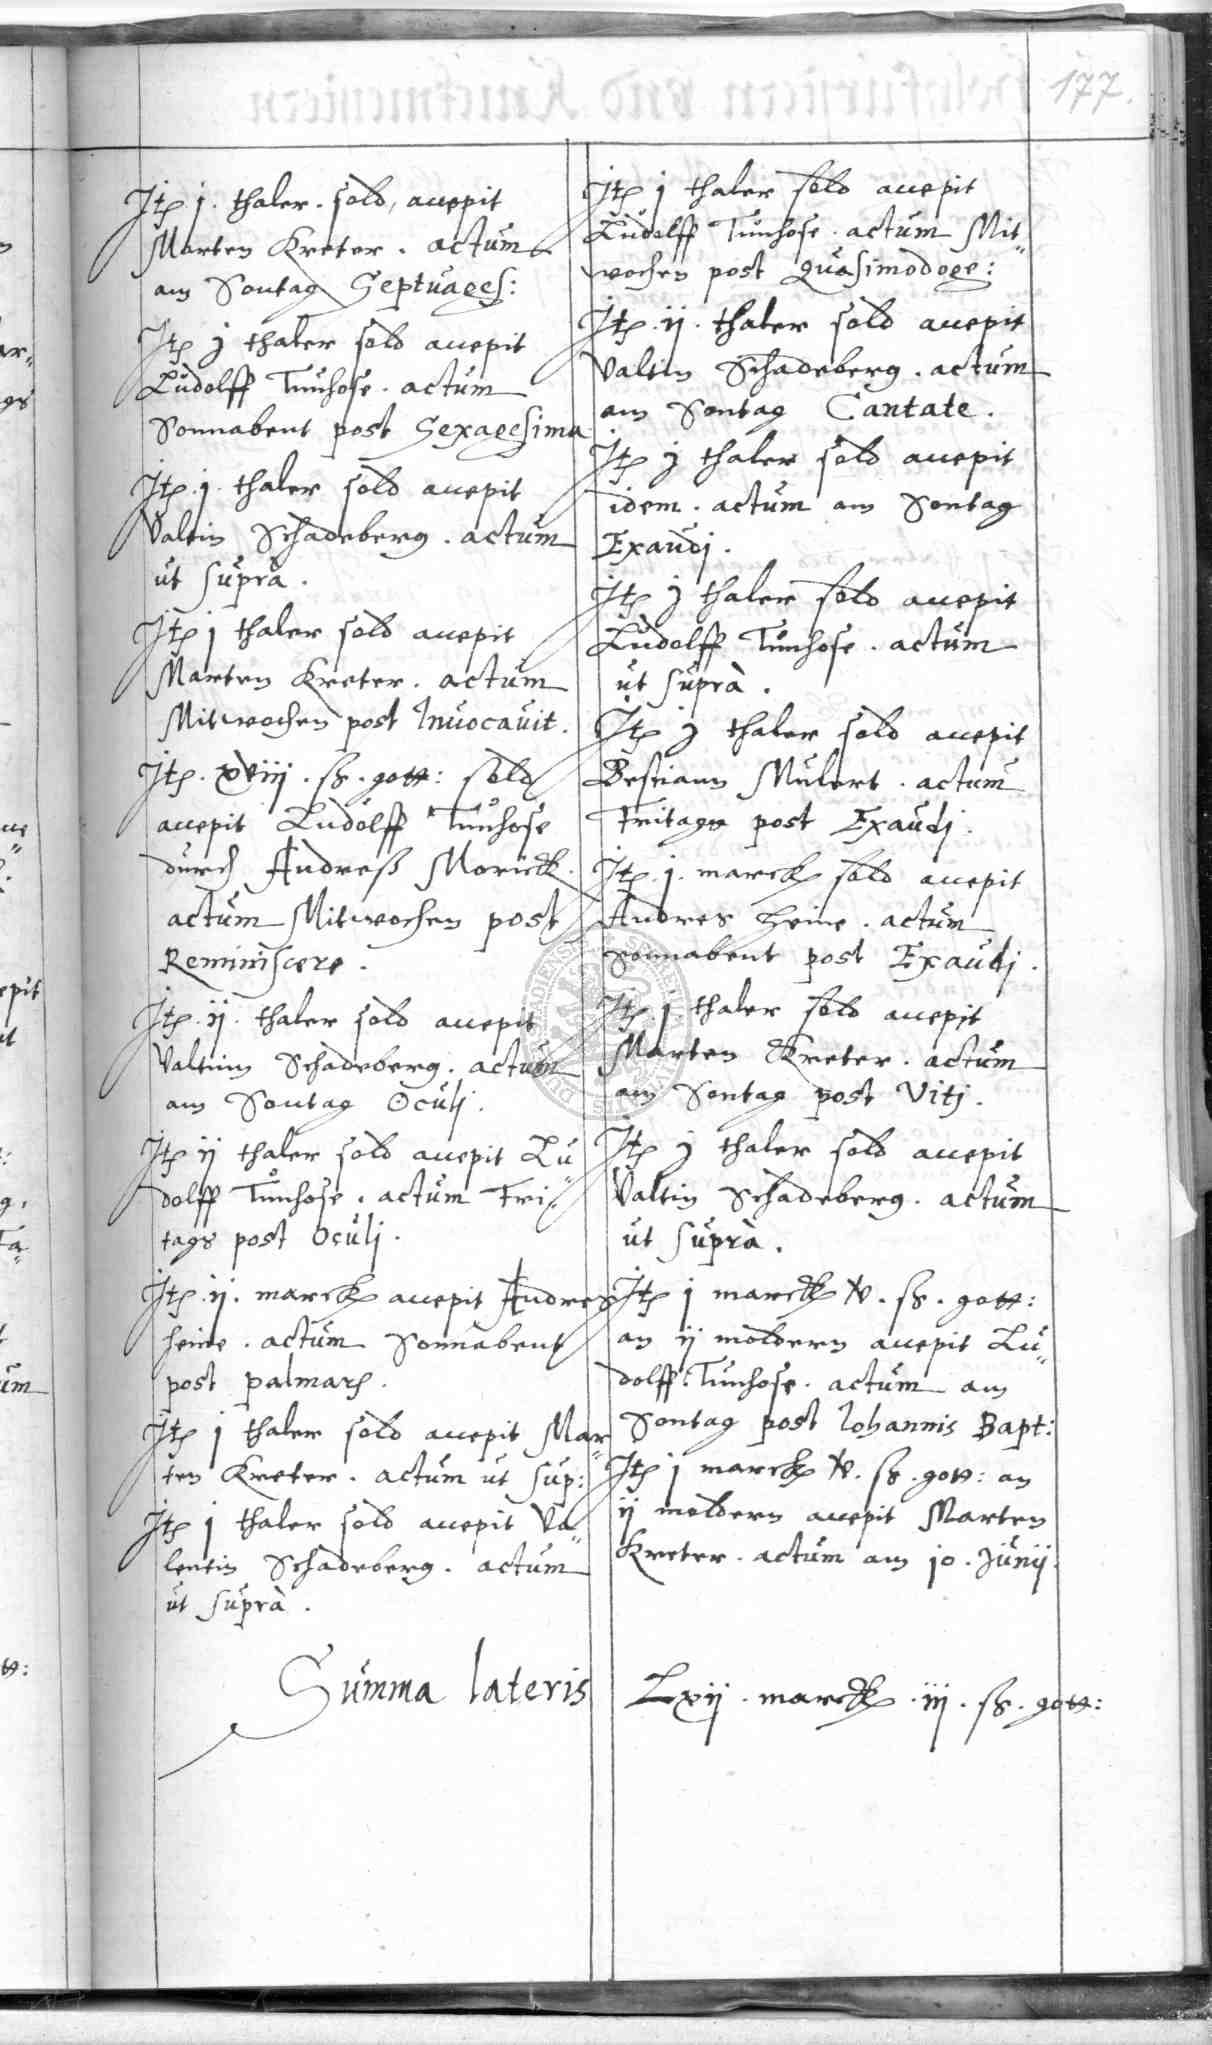 177.
Jtē. j. thaler. sold, accepit
Marten Kreter. actum
am Sontag Septuages:
Jtē j thaler sold accepit
Ludolff Tunhose. actum
Sonnabent post Sexagesima
Jtē. j. thaler sold accepit
Valtin Schadeberg. actum
ut supra.
Jtē j thaler sold accepit
Marten Kreter. actum
Mitwochen post Invocavit.
Jtē. xviij. sß. gott: sold
accepit Ludolff Tunhose
durch Andreß Morick.
actum Mitwochen post
Reminiscere.
Jtē. ij. thaler sold accepit
Valtinn Schadeberg. actum
am Sontag Oculj.
Jtē ij thaler sold accepit Lu=
dolff Tunhose. actum Fri=
tags post Oculj.
Jtē. ij. marck accepit Andres
Heine. actum Sonnabent
post palmarū.
Jtē j thaler sold accepit Mar=
ten Kreter. actum ut sup:
Jtē j thaler sold accepit Va=
lentin Schadeberg. actum
ut suprà.
Jtē j thaler sold accepit
Ludolff Tunhose. actum Mit=
wochen post Quasimodoge:
Jtē. ij. thaler sold accepit
Valtin Schadeberg. actum
am Sontag Cantate.
Jtē j thaler sold accepit
idem. actum am Sontag
Exaudj.
Jtē j thaler sold accepit
Ludolff Tunhose. actum
ut suprà.
Jtē j thaler sold accepit
Bestiann Mulert. actum
Fritags post Exaudj.
Jtē. j. marck sold accepit
Andres Heine. actum
Sonnabent post Exaudj.
Jtē. j. thaler sold accepit
Marten Kreter. actum
am Sontag post Vitj.
Jtē j thaler sold accepit
Valtin Schadeberg. actum
ut suprà.
Jtē j marck v. sß. gott:
an ij moldern accepit Lu=
dolff Tunhose. actum am
Sontag post Iohannis Bapt:
Jtē j marck v. sß. gott: an
ij moldern accepit Marten
Kreter. actum am jo. Junij.
Summa lateris Lxij. marck. iij. sß. gott: